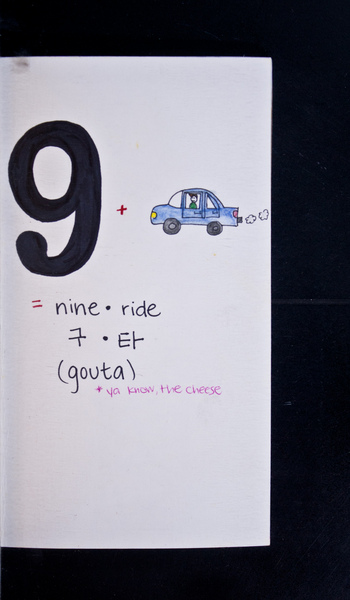 9 +
= nine • ride
구 • 타
(gouta)
* ya know, the cheese